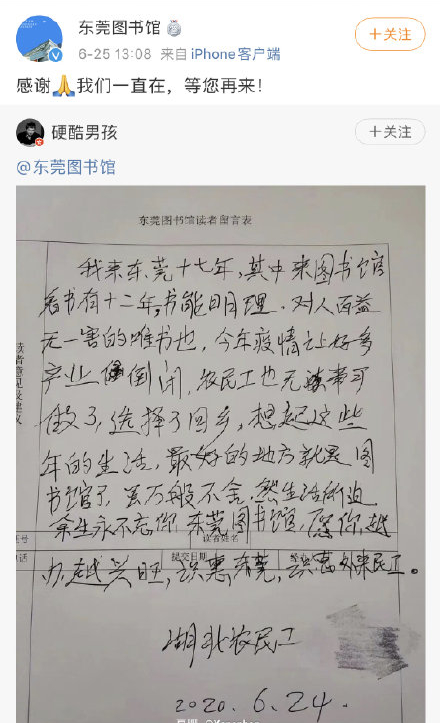 东莞图书馆
6-25 13:08 来自 iPhone客户端
+关注
感谢🙏我们一直在，等您再来！
硬酷男孩
+关注
@东莞图书馆
东莞图书馆读者留言表
读者意见及建议
我来东莞十七年，其中来图书馆
看书有十二年，书能明理，对人百益
无一害的唯书也，今年疫情让好多
产业倒闭，农民工也无事可
做了，选择了回乡，想起这些
年的生活，最好的地方就是图
书馆了，万般不舍，然生活所迫
余生永不忘你，东莞图书馆，愿你越
读者姓名
提交日期
办越兴旺，识惠东莞，识惠外来民工。
湖北农民工
2020.6.24.